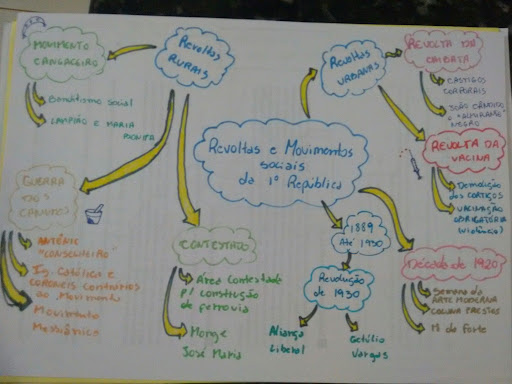 MOVIMENTO
CANGACEIRO
Banditismo social
LAMPIÃO E MARIA
BONITA
Revoltas
RURAIS
Revoltas
URBANAS
REVOLTA DA
CHIBATA
CASTIGOS
CORPORAIS
JOÃO CÂNDIDO
o "ALMIRANTE"
NEGRO
Revoltas e Movimentos
sociais
da 1ª República
REVOLTA DA
VACINA
Demolição
dos CORTIÇOS
VACINAÇÃO
OBRIGATÓRIA
(violência)
GUERRA
DE
CANUDOS
ANTÔNIO
"CONSELHEIRO"
Ig. Católica e
coronéis contrários
ao Movimento
Movimento
Messiânico
CONTESTADO
Área Contestada
p/ construção
de ferrovia
Monge
José Maria
1889
Até 1930
Revolução
de 1930
Aliança
Liberal
Getúlio
Vargas
Década de 1920
Semana da
ARTE MODERNA
COLUNA PRESTES
18 do Forte